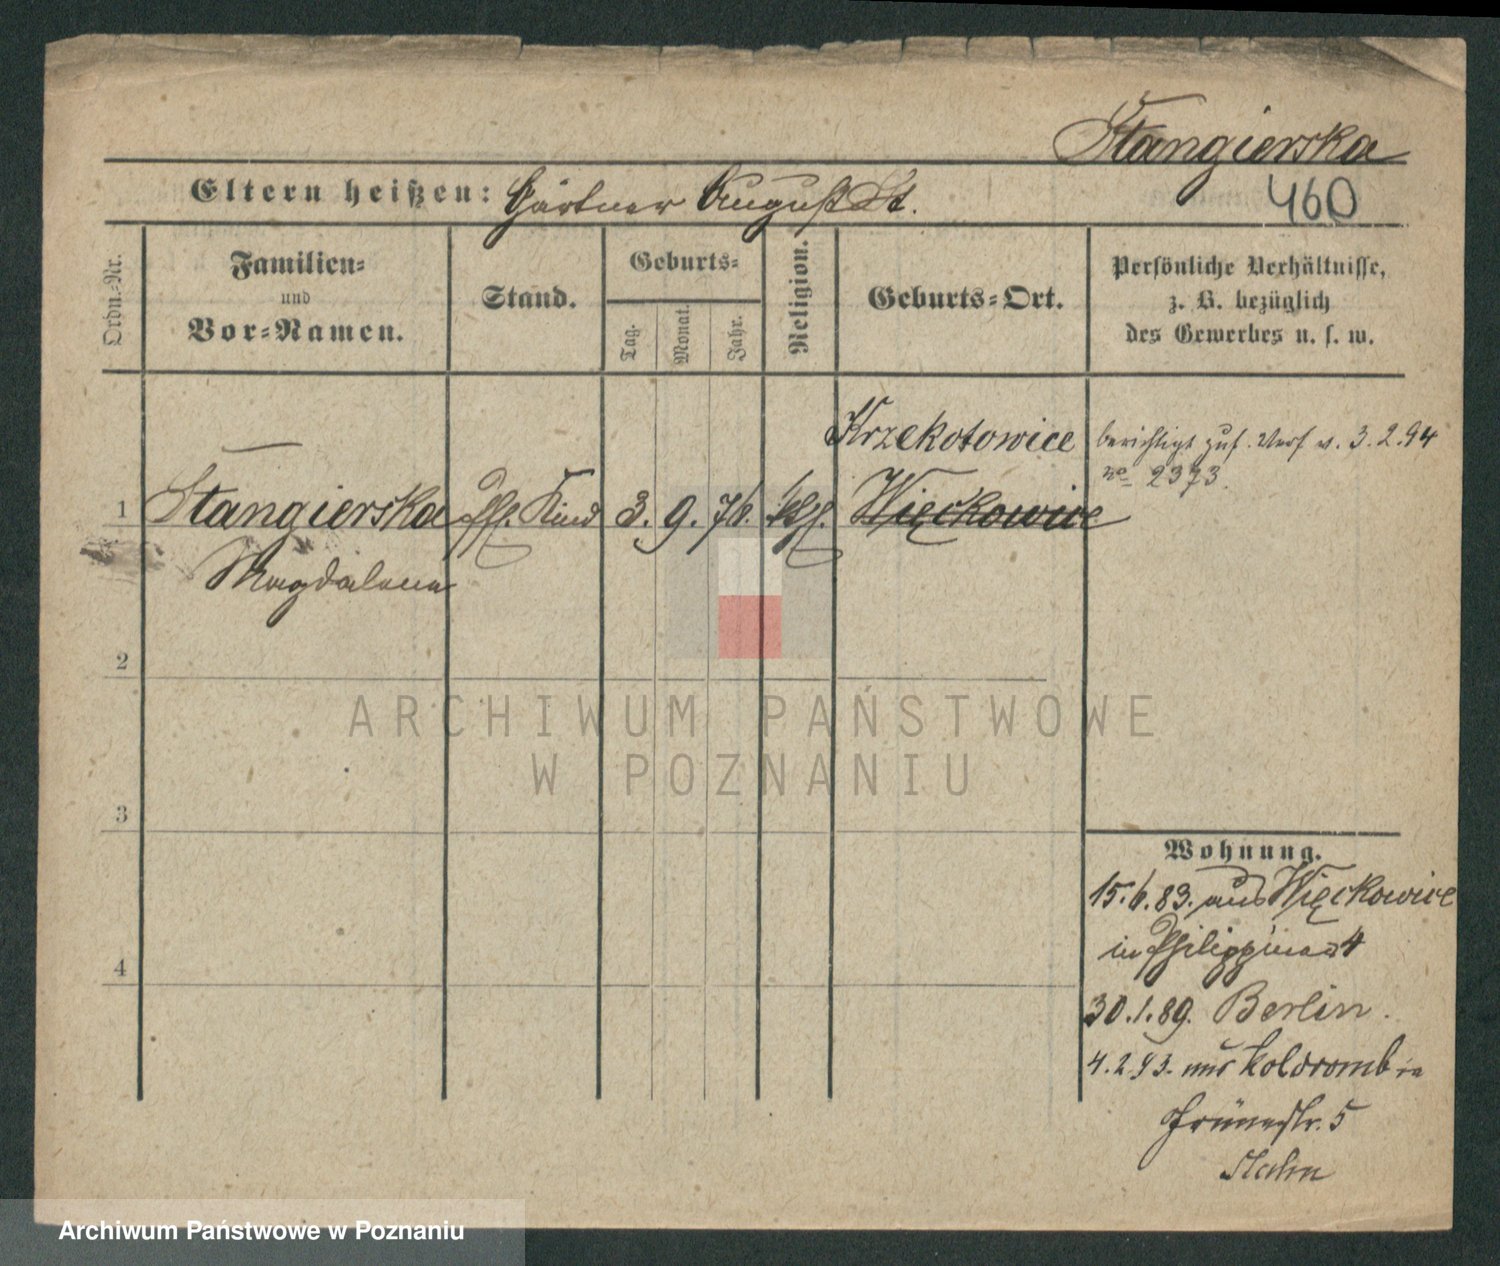 Stangierska
Eltern heißen: Gärtner August St.
460
Ordn.-Nr.
Familien-
und
Vor-Namen.
Stand.
Geburts-
Tag.
Monat.
Jahr.
Religion.
Geburts-Ort.
Persönliche Verhältnisse,
z. B. bezüglich
des Gewerbes u. s. w.
Krzekotowice
berichtigt zuf. Verf v. 3.2.94
No 2373.
1 Stangierska Kind 3. 9. 76. kath. Więckowice
Magdalena
2
3
4
Wohnung.
15.6.83. aus Więckowice
in Philippinen 4
30.1.89. Berlin.
4.2.93. aus Koldromb in
Grünestr. 5
ARCHIWUM PAŃSTWOWE
W POZNANIU
Archiwum Państwowe w Poznaniu